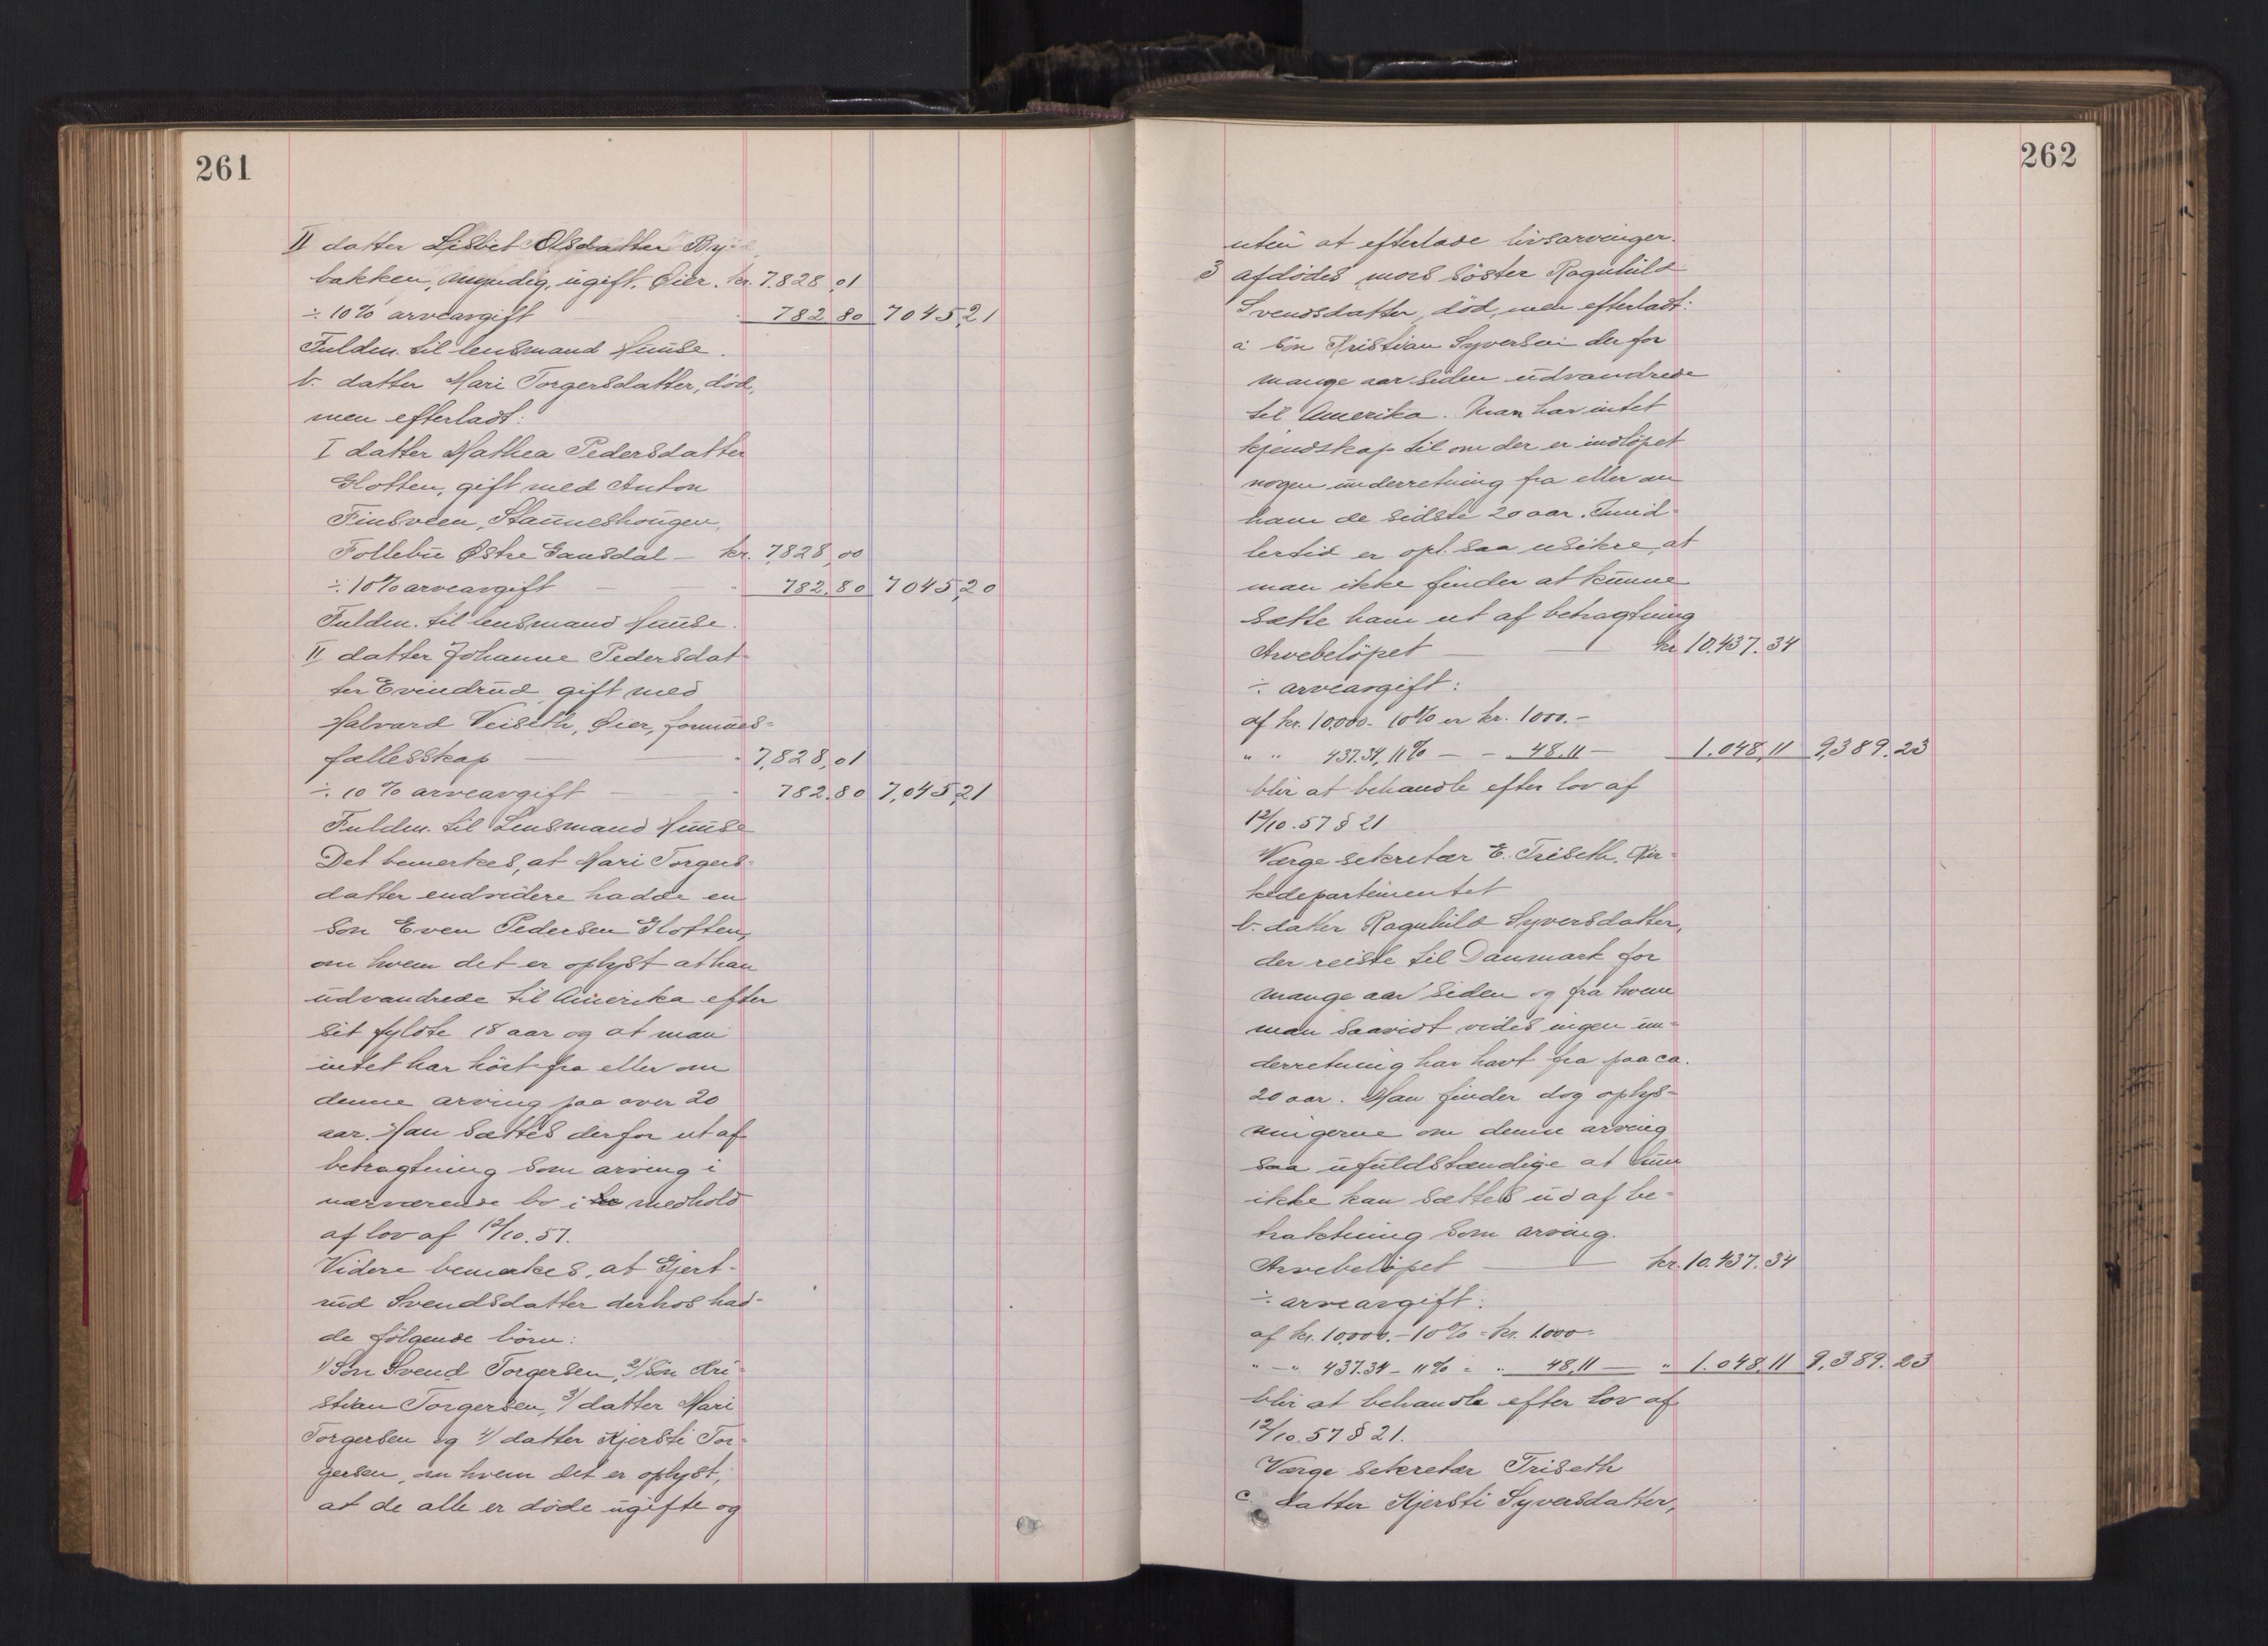 261
II datter Lisbet Olsdatter Byd
bakken, myndig, ugift, Øier. kr. 7.828,01
÷ 10% arveavgift 782 80 7045,21
Fuldm. til lensmand Huuse.
b. datter Mari Torgersdatter, død,
men efterladt:
I datter Mathea Pedersdatter
Slotten, gift med Anton
Finsveen, Stauneshougen,
Follebu Østre Gausdal – kr. 7828,00
÷ 10% arveavgift — - 782.80 7045,20
Fuldm. til lensmand Huuse.
II datter Johanne Pedersdat-
ter Evindrud gift med
Halvard Veiseth, Øier, formues=
fællesskap — — - 7,828,01
÷ 10 % arveavgift — - 782.80 7,045,21
Fuldm. til Lensmand Huuse
Det bemerkes, at Mari Torgers=
datter endvidere hadde en
søn Even Pedersen Slotten,
om hvem det er oplyst at han
udvandrede til Amerika efter
sit fyldte 18 aar og at man
intet har hört fra eller om
denne arving paa over 20
aar. Han sættes derfor ut af
betragtning som arving i
nærværende bo i medhold
af lov af 12/10.57.
Videre bemerkes, at Gjert-
rud Svendsdatter derhos had-
de følgende børn:
1/ Søn Svend Torgersen, 2/ søn Kri=
stian Torgersen, 3/ datter Mari
Torgersen og 4/ datter Kjersti Tor=
gersen, om hvem det er oplyst,
at de alle er døde ugifte og
262
uten at efterlade livsarvinger.
3 afdødes mors söster Ragnhild
Svendsdatter, död, men efterladt:
a søn Kristian Syversen der for
mange aar siden udvandrede
til Amerika. Man har intet
kjendskap til om der er indløpet
nogen underretning fra eller om
ham de sidste 20 aar. Imid=
lertid er opl. saa usikre, at
man ikke finder at kunne
sætte ham ut af betragtning
Arvebeløpet — — kr 10.437.34
÷ arveavgift:
af kr. 10.000.- 10% er kr. 1000.-
" " 437.34, 11% — - 48.11 — 1.048,11 9,389.23
blir at behandle efter lov af
12/10.57 § 21
Værge sekretær E. Triseth, Kir=
kedepartementet
b. datter Ragnhild Syversdatter,
der reiste til Danmark for
mange aar siden og fra hvem
man saavidt vides ingen un=
derretning har havt fra paa ca.
20 aar. Man finder dog oplys=
ningerne om denne arving
saa ufuldstændige at hun
ikke kan sættes ud af be=
traktning som arving.
Arvebeløpet — kr. 10.437.34
÷ arveavgift:
af kr. 10.000.- 10% = kr. 1.000-
" — " 437.34 - 11% = " 48,11 — " 1.048,11 9,389.23
blir at behandle efter lov af
12/10.57 § 21.
Værge sekretær Triseth
c. datter Kjersti Syversdatter,